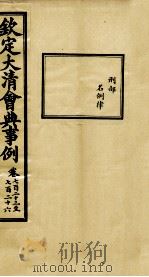 欽定大清會典事例
卷七百二十三至
七百二十六
刑部
名例律